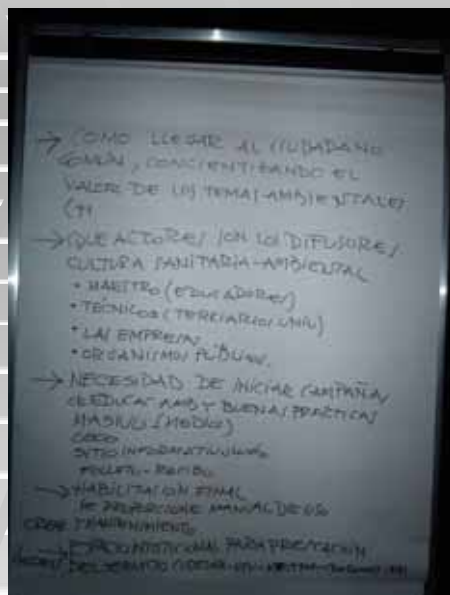 → COMO LLEGAR AL CIUDADANO
COMÚN, CONCIENTIZANDO EL
VALOR DE LOS TEMAS AMBIENTALES
→ QUE ACTORES SON LOS DIFUSORES
CULTURA SANITARIA-AMBIENTAL
• MAESTRO (EDUCADORES)
• TÉCNICOS (TERCIARIOS UNIV)
• LAS EMPRESAS
• ORGANISMOS PÚBLICOS.
→ NECESIDAD DE INICIAR CAMPAÑAS
DE EDUC. AMB Y BUENAS PRÁCTICAS
MASIVAS (MEDIOS)
SITIO INFORMATIVO
FOLLETO -
→ HABILITACION FINAL
SE PROPORCIONE MANUAL DE USO
Y MANTENIMIENTO
CREAR
→ ESPACIO INSTITUCIONAL PARA PRESTACIÓN
DEL SERVICIO